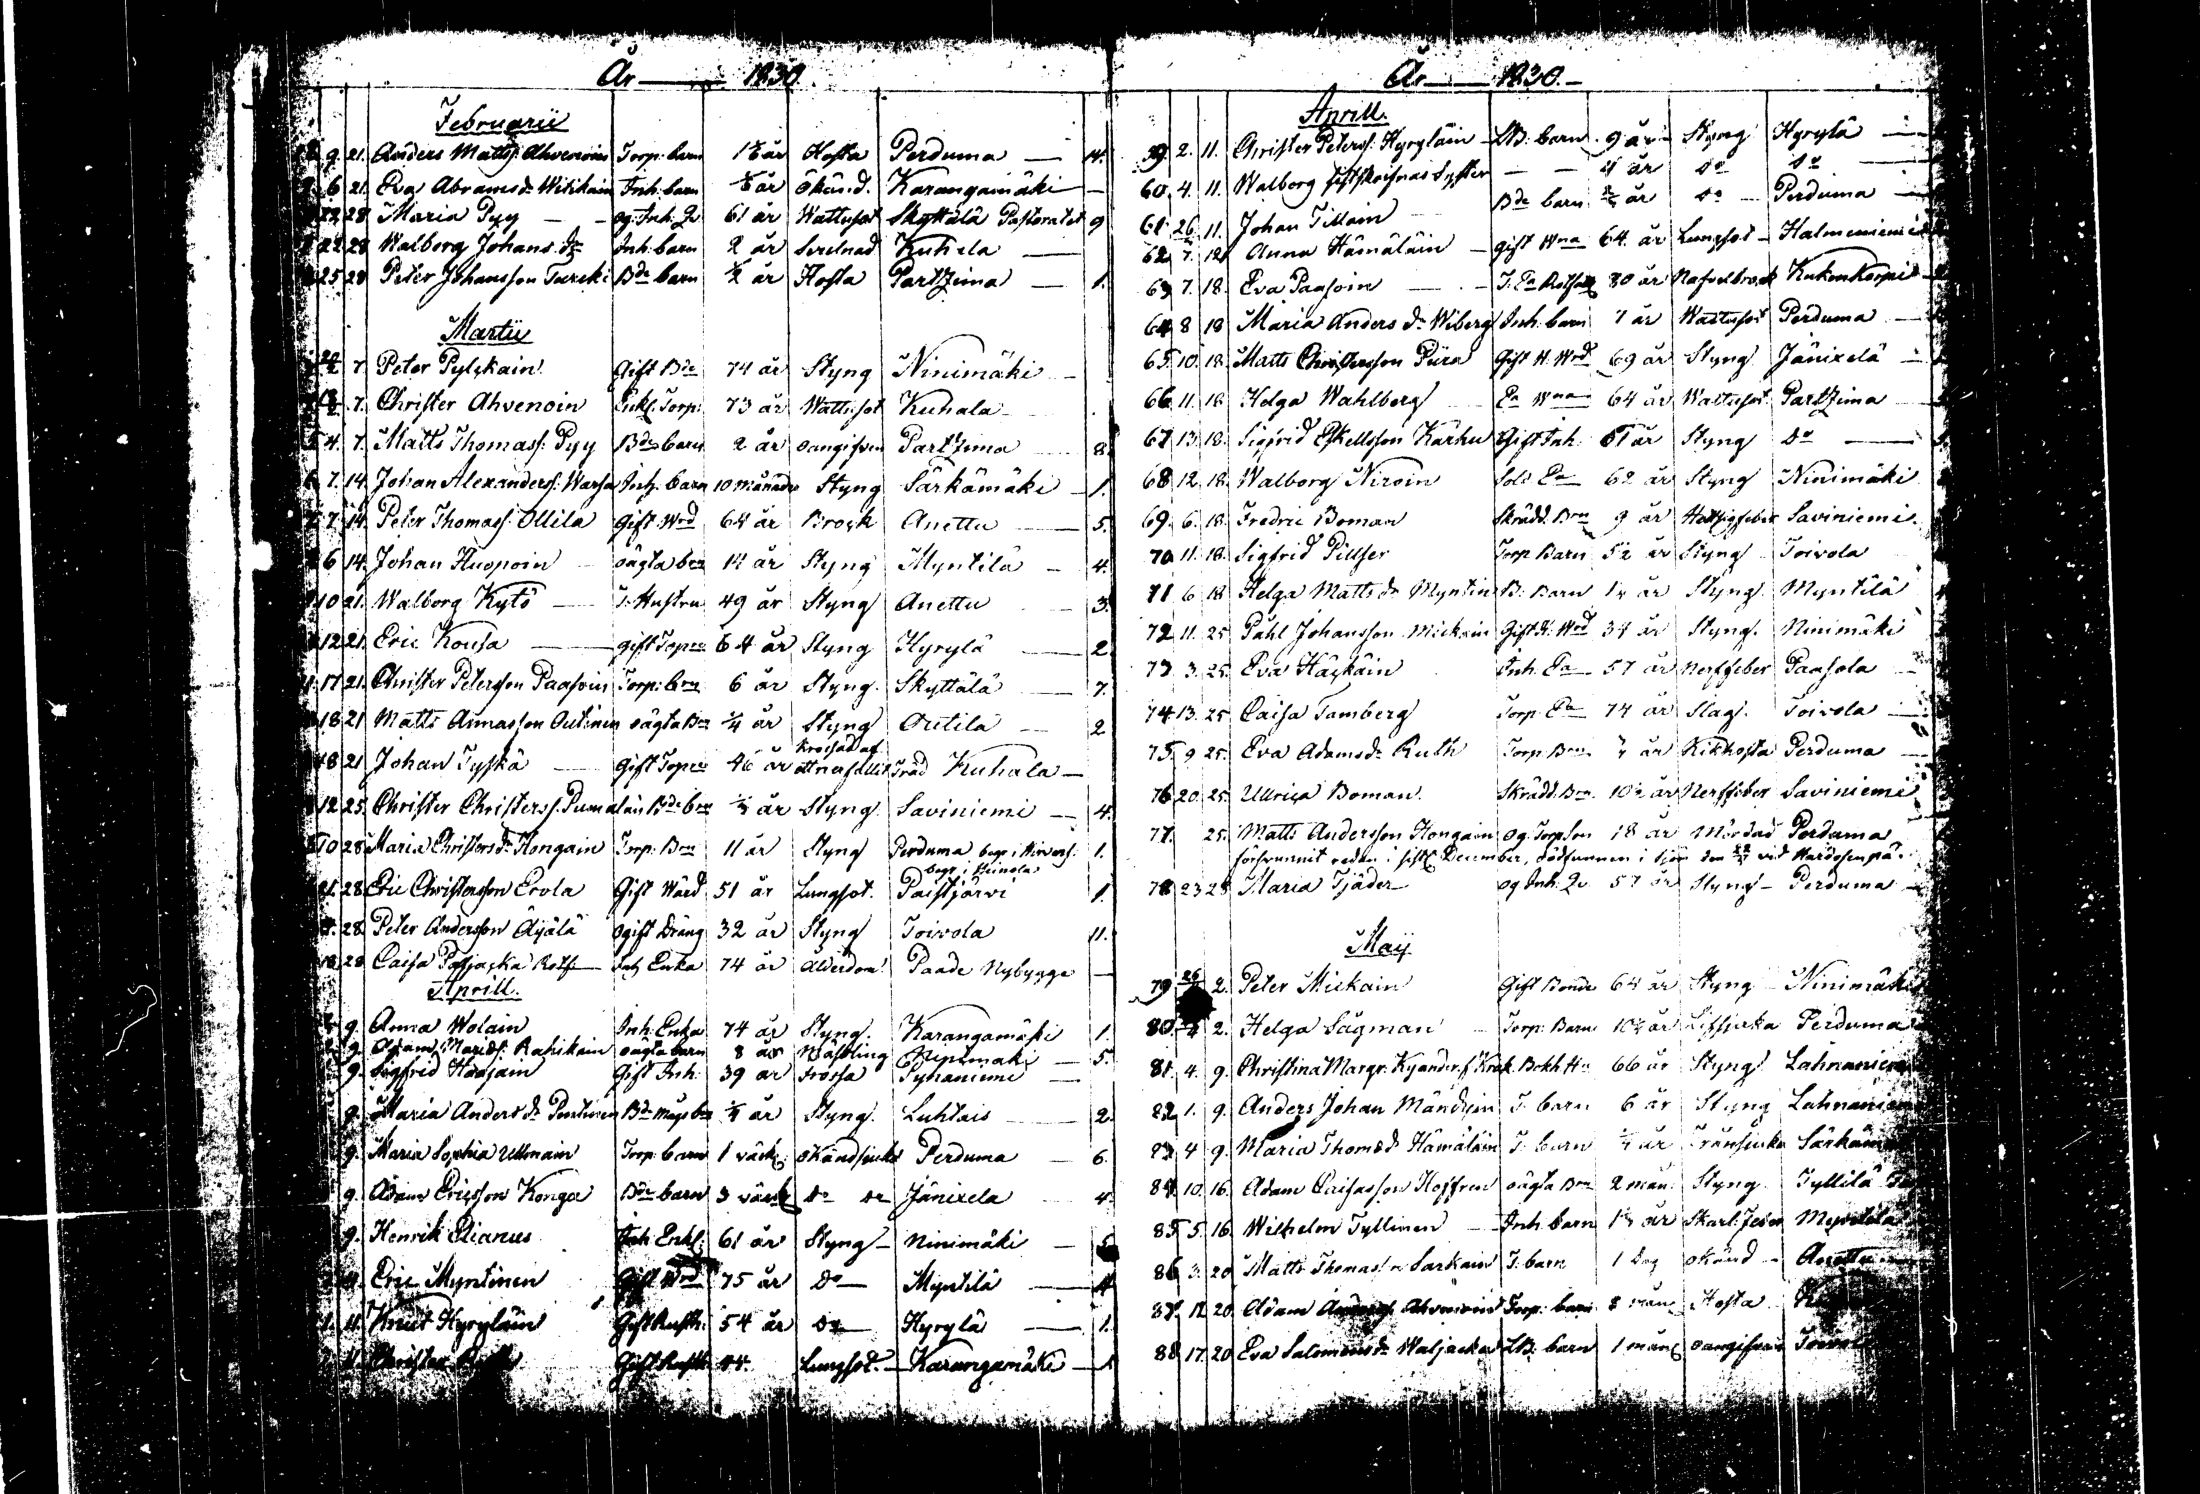 År 1830.
Februarii
9. 21. Anders Matts: Ahvenoin Torp: barn 1½ år Hosta Perduma
6 21. Eva Abramsdr Witikain Inh: barn ½ år Okänd. Karangamäki
22 28 Maria Pyy og: Inh. Qv 61 år Wattusot Skyttälä Pastoratet 9
22 28 Walborg Johans dr Inh: barn 2 år Kuhala
25 28 Peter Johansson Tureki Bde barn ½ år Hosta Partzima 1.
Martii
7. Peter Pylkkäin Gift Bde 74 år Styng Ninimäki
7. Christer Ahvenoin Enkl: Torp: 73 år Wattusot Kuhala
4. 7. Matts Thomass: Pyy Bde barn 2 år oangifven Partzima 8.
7. 14. Johan Alexanderss: Warsa Inh: barn 10 månader Styng Särkämäki 1.
7. 14. Peter Thomass: Ollila Gift Wrd 64 år Bråck Anettu 5.
6 14. Johan Huopoin oägta brn 14 år Styng Myntilä 4.
10 21. Walborg Kytö I: Hustru 49 år Styng Anettu 3.
12 21. Eric Kousa gift Torp 64 år Styng Hyrylä 2
17 21. Christer Petersson Paasoin Torp: brn 6 år Styng. Skyttälä 7.
18 21 Matts Annasson Outinen oägta brn ¼ år Styng Outila 2
Krossad af
18 21 Johan Tyskä Gift Torp 46 år ett nerfallit Träd Kuhala
12 25. Christer Christerss: Pumalain Bde brn ¼ år Styng Saviniemi 4.
10 28 Maria Christersdr Hongain Torp: Brn 11 år Styng Perduma begr: i Hirvens: 1.
begr: i Heinola
21. 28 Eric Christersson Ervla Gift Wärd 51 år Lungsot. Paistjärvi 1.
28. Peter Andersson Äijälä Ogift Dräng 32 år Styng Toivola 11.
28 Caisa Enka 74 år Ålderdom Paade Nybygge
Aprill.
9. Anna Wolain Inh: Enka 74 år Styng. Karangamäki 1.
9. Adam Mariæs: Rahikain oägta barn 8 år Mässling Ninimäki 5.
9. Sigfrid Haajain Gift Inh. 39 år Frossa Pyhäniemi
9. Maria Anders dr Pentinen ¼ år Styng. Luhtais 2.
9. Maria Sophia Ullmain Torp: barn 1 veck: okänd sjuka Perduma 6.
9. Adam Ericsson Konga Bde barn 3 veck do do Jänixela 4.
9. Henrik Elianus Inh: Enkl: 61 år Styng Ninimäki 5
11. Eric Myntinen Gift Wrd 75 år do Myntilä 4
1. 11. Knut Hyryläin Gift Rusth: 54 år do Hyrylä 1.
11. Christer Gift Rusth 44. Lungsot. Karangamäki 1
År 1830.
Aprill.
59 2. 11. Christer Peterss: Hyryläin LB: barn 9 år Styng Hyrylä
60. 4. 11. Walborg Syster 4 år do do
61. 26 11. Johan Tillain Bde barn ¾ år do Perduma
62 7. 18. Anna Hämäläin gift Wna 64 år Lungsot Halmeniemi
63 7. 18. Eva Paasoin I: Ea 80 år Nafvelbrock Kukonkorpi
64 8 18 Maria Anders dr Wiberg Inh: barn 7 år Wattusot Perduma
65. 10. 18. Matts Christersson Püra Gift H. Wrd 69 år Styng Jänixelä
66 11. 18 Helga Wahlberg Ea Wna 64 år Wattusot. Partzima
67. 13. 18. Sigfrid Eskellsson Karhu Gift Inh: 61 år Styng do
68 12. 18. Walborg Niroin Sold Ea 62 år Styng Ninimäki
69. 6. 18. Fredric Boman Skrädd. Brn 9 år Hetsigfeber Saviniemi.
70 11. 18. Sigfrid Pillser Torp Barn 5½ år Styng Toivola
71 6 18 Helga Matts dr Myntin B: Barn 1½ år Styng. Myntilä
72 11. 25 Påhl Johansson Mickain Gift H. Wrd 34 år Styng. Ninimäki
73 3. 25. Eva Häskäin Inh. Ea 57 år Nerffeber Paasola
74 13. 25 Caisa Tamberg Torp Ea 74 år Slag. Toivola
75. 9 25. Eva Adamsdr Ruth Torp: Brn ¾ år Kikhosta Perduma
76 20 25. Ullrica Boman. Skrädd: Brn. 10½ år Nerffeber Saviniemi
77. 25. Matts Andersson Hongain Og Torp Son 18 år Mördad Perduma
försvunnit redan i sistl: December, dödfunnen i sjön den vid
78 23 25 Maria Tjäder og Inh: Qv 57 år Styng Perduma
Maij
79 26 2. Peter Mickain Gift Bonde 64 år Styng Ninimäki
80. 2. Helga Sågman Torp: Barn 10½ år Perduma
81. 4. 9. Christina Margr: Kyander 66 år Styng Lahnaniemi
82 1. 9. Anders Johan Mändyin I: barn 6 år Styng Lahnaniem
83 4 9. Maria Thomædr Hämäläin I: barn ¼ år Tränsjuka Särkäm
84 10. 16. Adam Caisasson Hoffren oägta Brn 2 mån: Styng Tyllilä
85 5 16. Wilhelm Tyllinen Inh: barn 1½ år Skarl: Feber Myntilä
86 3. 20 Matts Thomass: Särkain I: barn 1 dag okänd Anettu
87. 12 20 Adam Anderss: Ahvenoin Torp: barn 8 mån: Hosta
88 17. 20 Eva Salomonsdr Waljacka LB: barn 1 mån: oangifven Toivol